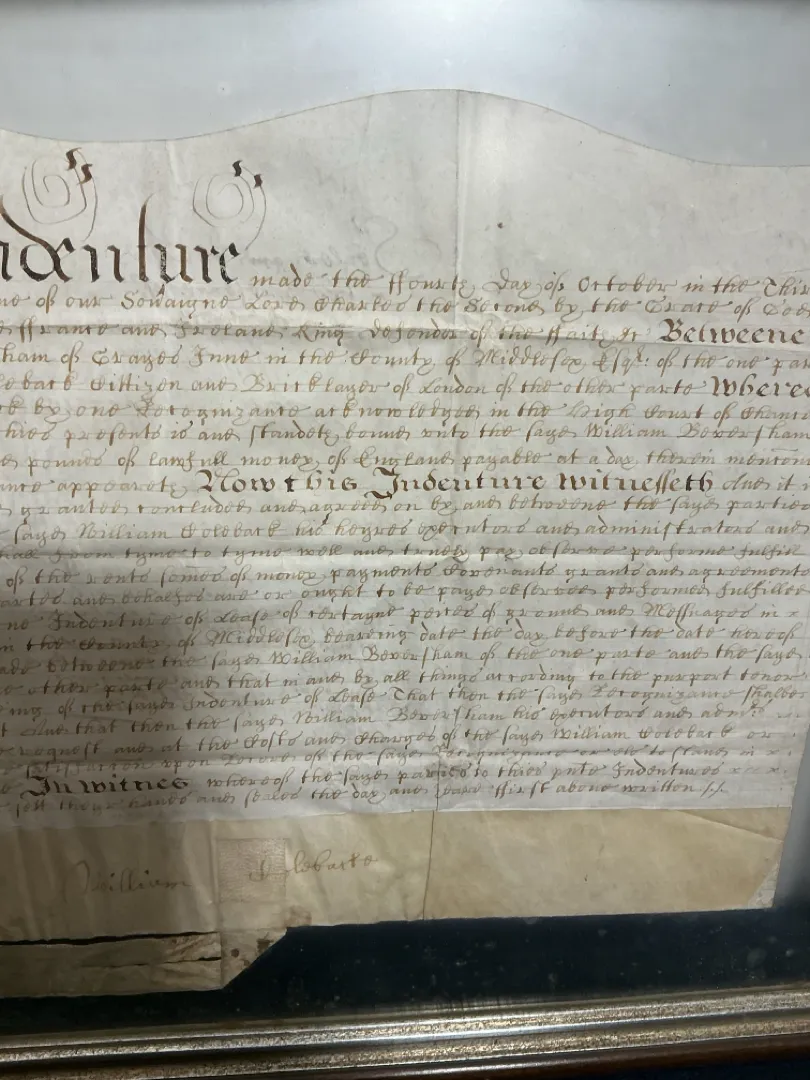 ndenture made the ffourth Day of October in the Thir
ne of our Soveraigne Lord Charles the Second by the Grace of God
ffrance and Ireland King Defendor of the ffaith &c Betweene
ham of Grayes Inne in the County of Middlesex Esqr of the one par
oleback Cittizen and Bricklayer of London of the other parte Where
ck by one Recognizance acknowledged in the High Court of Chance
thies presents is and standeth bound unto the sayd William Beversham
pounds of lawfull money of England payable at a day therein mencon
ance appeareth Now this Indenture witnesseth that it i
granted concluded and agreed on by and betweene the sayd parties
sayd William Coleback his heyres executors and administrators and
shall from tyme to tyme well and truely pay observe performe fulfill
of the rents somes of money payments Covenants grants and agreements
partes and behalfes are or ought to be payd observed performed fulfilled
one Indenture of Lease of certayne peeces of ground and Messuages in
in the County of Middlesex bearing date the day before the date hereof
made betweene the sayd William Beversham of the one parte and the sayd
other parte and that in and by all things according to the purport tenor
ing of the sayd Indenture of Lease That then the sayd Recognizance shalbee
And that then the sayd William Beversham his executors and
request and at the Costs and Charges of the sayd William Coleback or
satisfaction upon Record of the sayd Recognizance or els to stand in
In witnes whereof the sayd parties to thies pnte Indentures
sett theyr hands and seales the day and yeare ffirst above written
William Colebacke